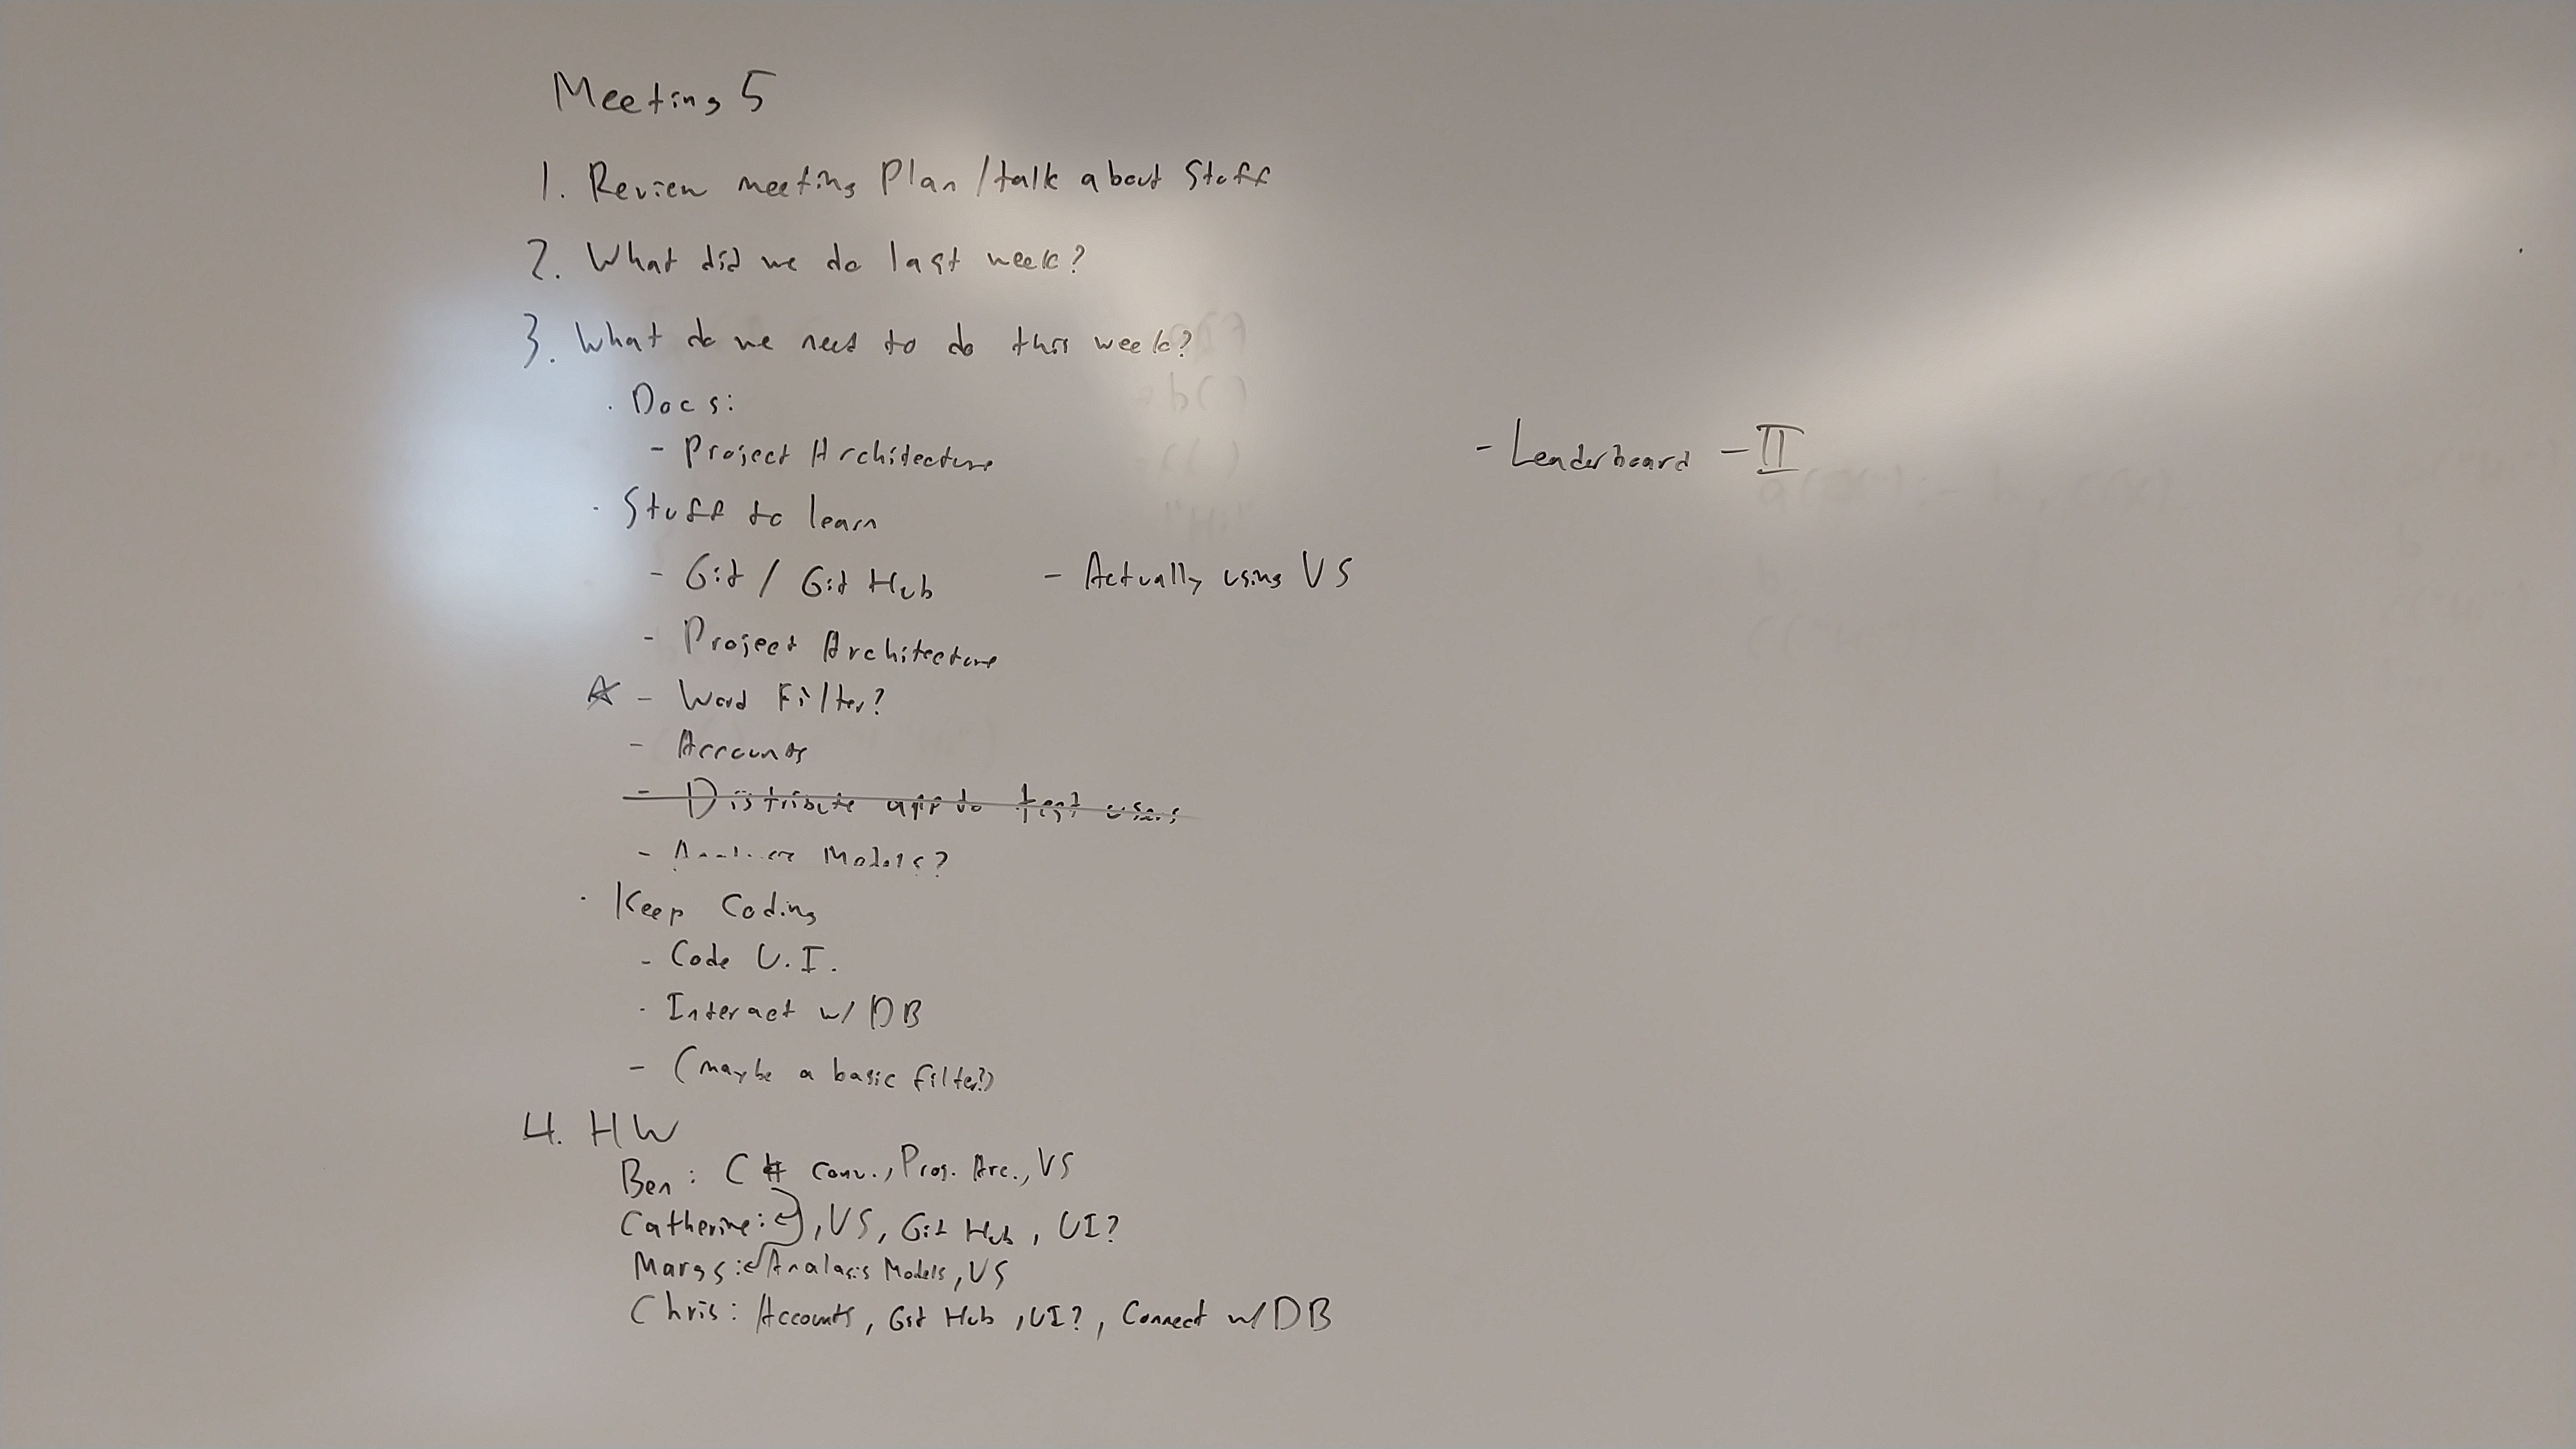 Meeting 5
1. Review meeting Plan / talk about Stuff
2. What did we do last week?
3. What do we need to do this week?
· Docs:
- Project Architecture
- Leaderboard - II
· Stuff to learn
- Git / GitHub - Actually using VS
- Project Architecture
☆ - Word Filter?
- Accounts
- Distribute app to test users
- Models?
· Keep Coding
- Code U.I.
· Interact w/ DB
- (maybe a basic filter?)
4. HW
Ben: C# conv., Proj. Arc., VS
Catherine: , VS, GitHub, UI?
Margs: Analasis Models, VS
Chris: Accounts, GitHub, UI?, Connect w/ DB